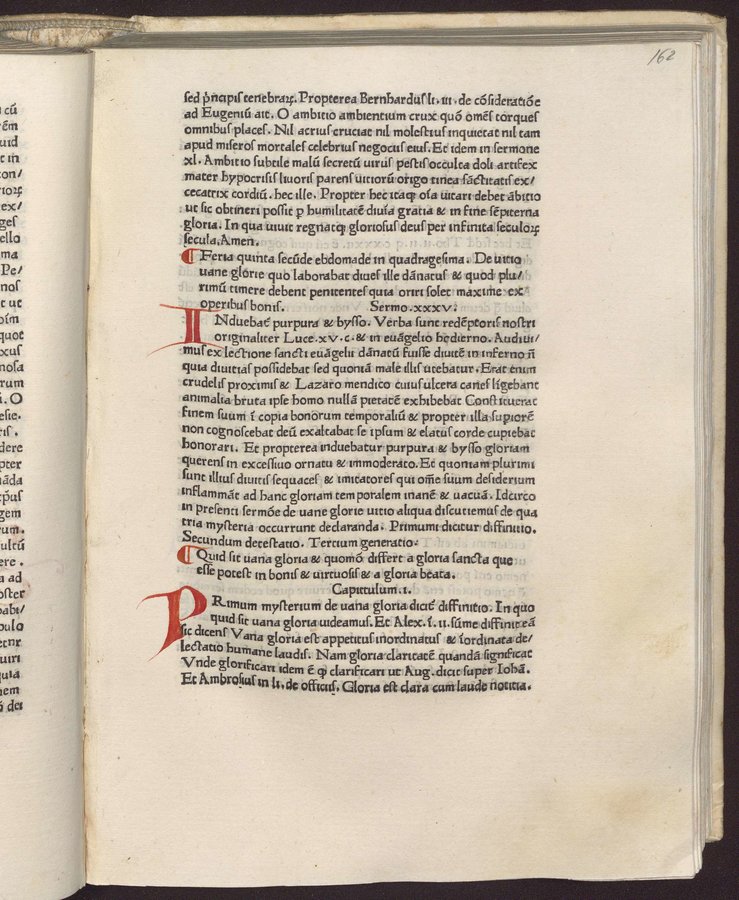 162
sed ṗncipis tenebraꝝ. Propterea Bernhardus li. iii. de cõsideratiõe
ad Eugeniũ ait. O ambitio ambientium crux quõ omẽs torques
omnibus places. Nil acrius cruciat nil molestius inquietat nil tam
apud miseros mortales celebrius negociis eius. Et idem in sermone
xl. Ambitio subtile malũ secretũ virus pestis occulta doli artifex
mater hypocrisis livoris parens uitiorũ origo tinea sãctitatis ex/
cecatrix cordiũ. hec ille. Propter hec itaqꝫ oĩa uitari debet ãbitio
ut sic obtineri possit ꝑ humilitatẽ diuĩa gratia & in fine sẽpiterna
gloria. In qua uiuit regnatqꝫ gloriosus deus per infinita seculoꝝ
secula. Amen.
Feria quinta secũde ebdomade in quadragesima. De uitio
uane glorie quo laborabat diues ille dãnatus & quod plu/
rimũ timere debent penitentes quia oriri solet maxime ex
operibus bonis. Sermo. xxxv.
INduebat̃ purpura & bysso. Verba sunt redẽptoris nostri
originaliter Luce. xv. c. & in euãgelio hodierno. Audiui/
mus ex lectione sancti euãgelii dãnatũ fuisse diuitẽ in inferno ñ
quia diuitias possidebat sed quoniã male illis utebatur. Erat enim
crudelis proximis & Lazaro mendico cuius ulcera canes lĩgebant
animalia bruta ipse homo nullã pietatẽ exhibebat Constituerat
finem suum ĩ copia bonorum temporaliũ & propter illa supiorẽ
non cognoscebat deũ exaltabat se ipsum & elatus corde cupiebat
honorari. Et propterea induebatur purpura & bysso gloriam
querens in excessiuo ornatu & immoderato. Et quoniam plurimi
sunt illius diuitis sequaces & imitatores qui omẽ suum desiderium
inflammãt ad hanc gloriam temporalem inanẽ & uacuã. Idcirco
in presenti sermõe de uane glorie uitio aliqua discutiemus de qua
tria mysteria occurrunt declaranda. Primum dicitur diffinitio.
Secundum detestatio. Tertium generatio.
Quid sit uana gloria & quomõ differt a gloria sancta que
esse potest in bonis & uirtuosis & a gloria beata.
Capittulum. i.
PRimum mysterium de uana gloria dicit̃ diffinitio. In quo
quid sit uana gloria uideamus. Et Alex. ĩ. ii. sũme diffinit eã
sic dicens Vana gloria est appetitus inordinatus & iordinata de/
lectatio humane laudis. Nam gloria claritatẽ quandã significat
Vnde glorificari idem ẽ qꝫ clarificari ut Aug. dicit super Iohã.
Et Ambrosius in li. de officiis. Gloria est clara cum laude notitia.